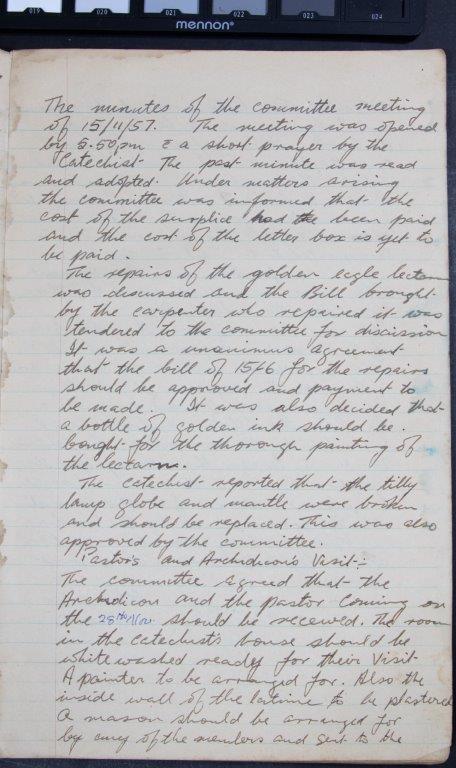 019 020 021 022 023 024
mennon
The minutes of the committee meeting
of 15/11/57. The meeting was opened
by 5.50pm & a short prayer by the
Catechist. The past minute was read
and adopted. Under matters arising
the committee was informed that the
cost of the surplice had the been paid
and the cost of the letter box is yet to
be paid.
The repairs of the golden eagle lectern
was discussed and the Bill brought
by the carpenter who repaired it was
tendered to the committee for discission
It was a unanimus agreement
that the bill of 15/6 for the repairs
should be approved and payment to
be made. It was also decided that
a bottle of golden ink should be.
bought for the thorough painting of
the lectarn.
The catechist reported that the tilly
lamp globe and mantle were broken
and should be replaced. This was also
approved by the committee.
Pastor's and Archidicon's Visit:-
The committee agreed that the
Archidicon and the pastor coming on
the 28th/Nov. should be received. The room
in the catechist's house should be
white washed ready for their Visit
A painter to be arranged for. Also the
inside wall of the latrine to be plastered
a mason should be arranged for
by any of the members and sent to the